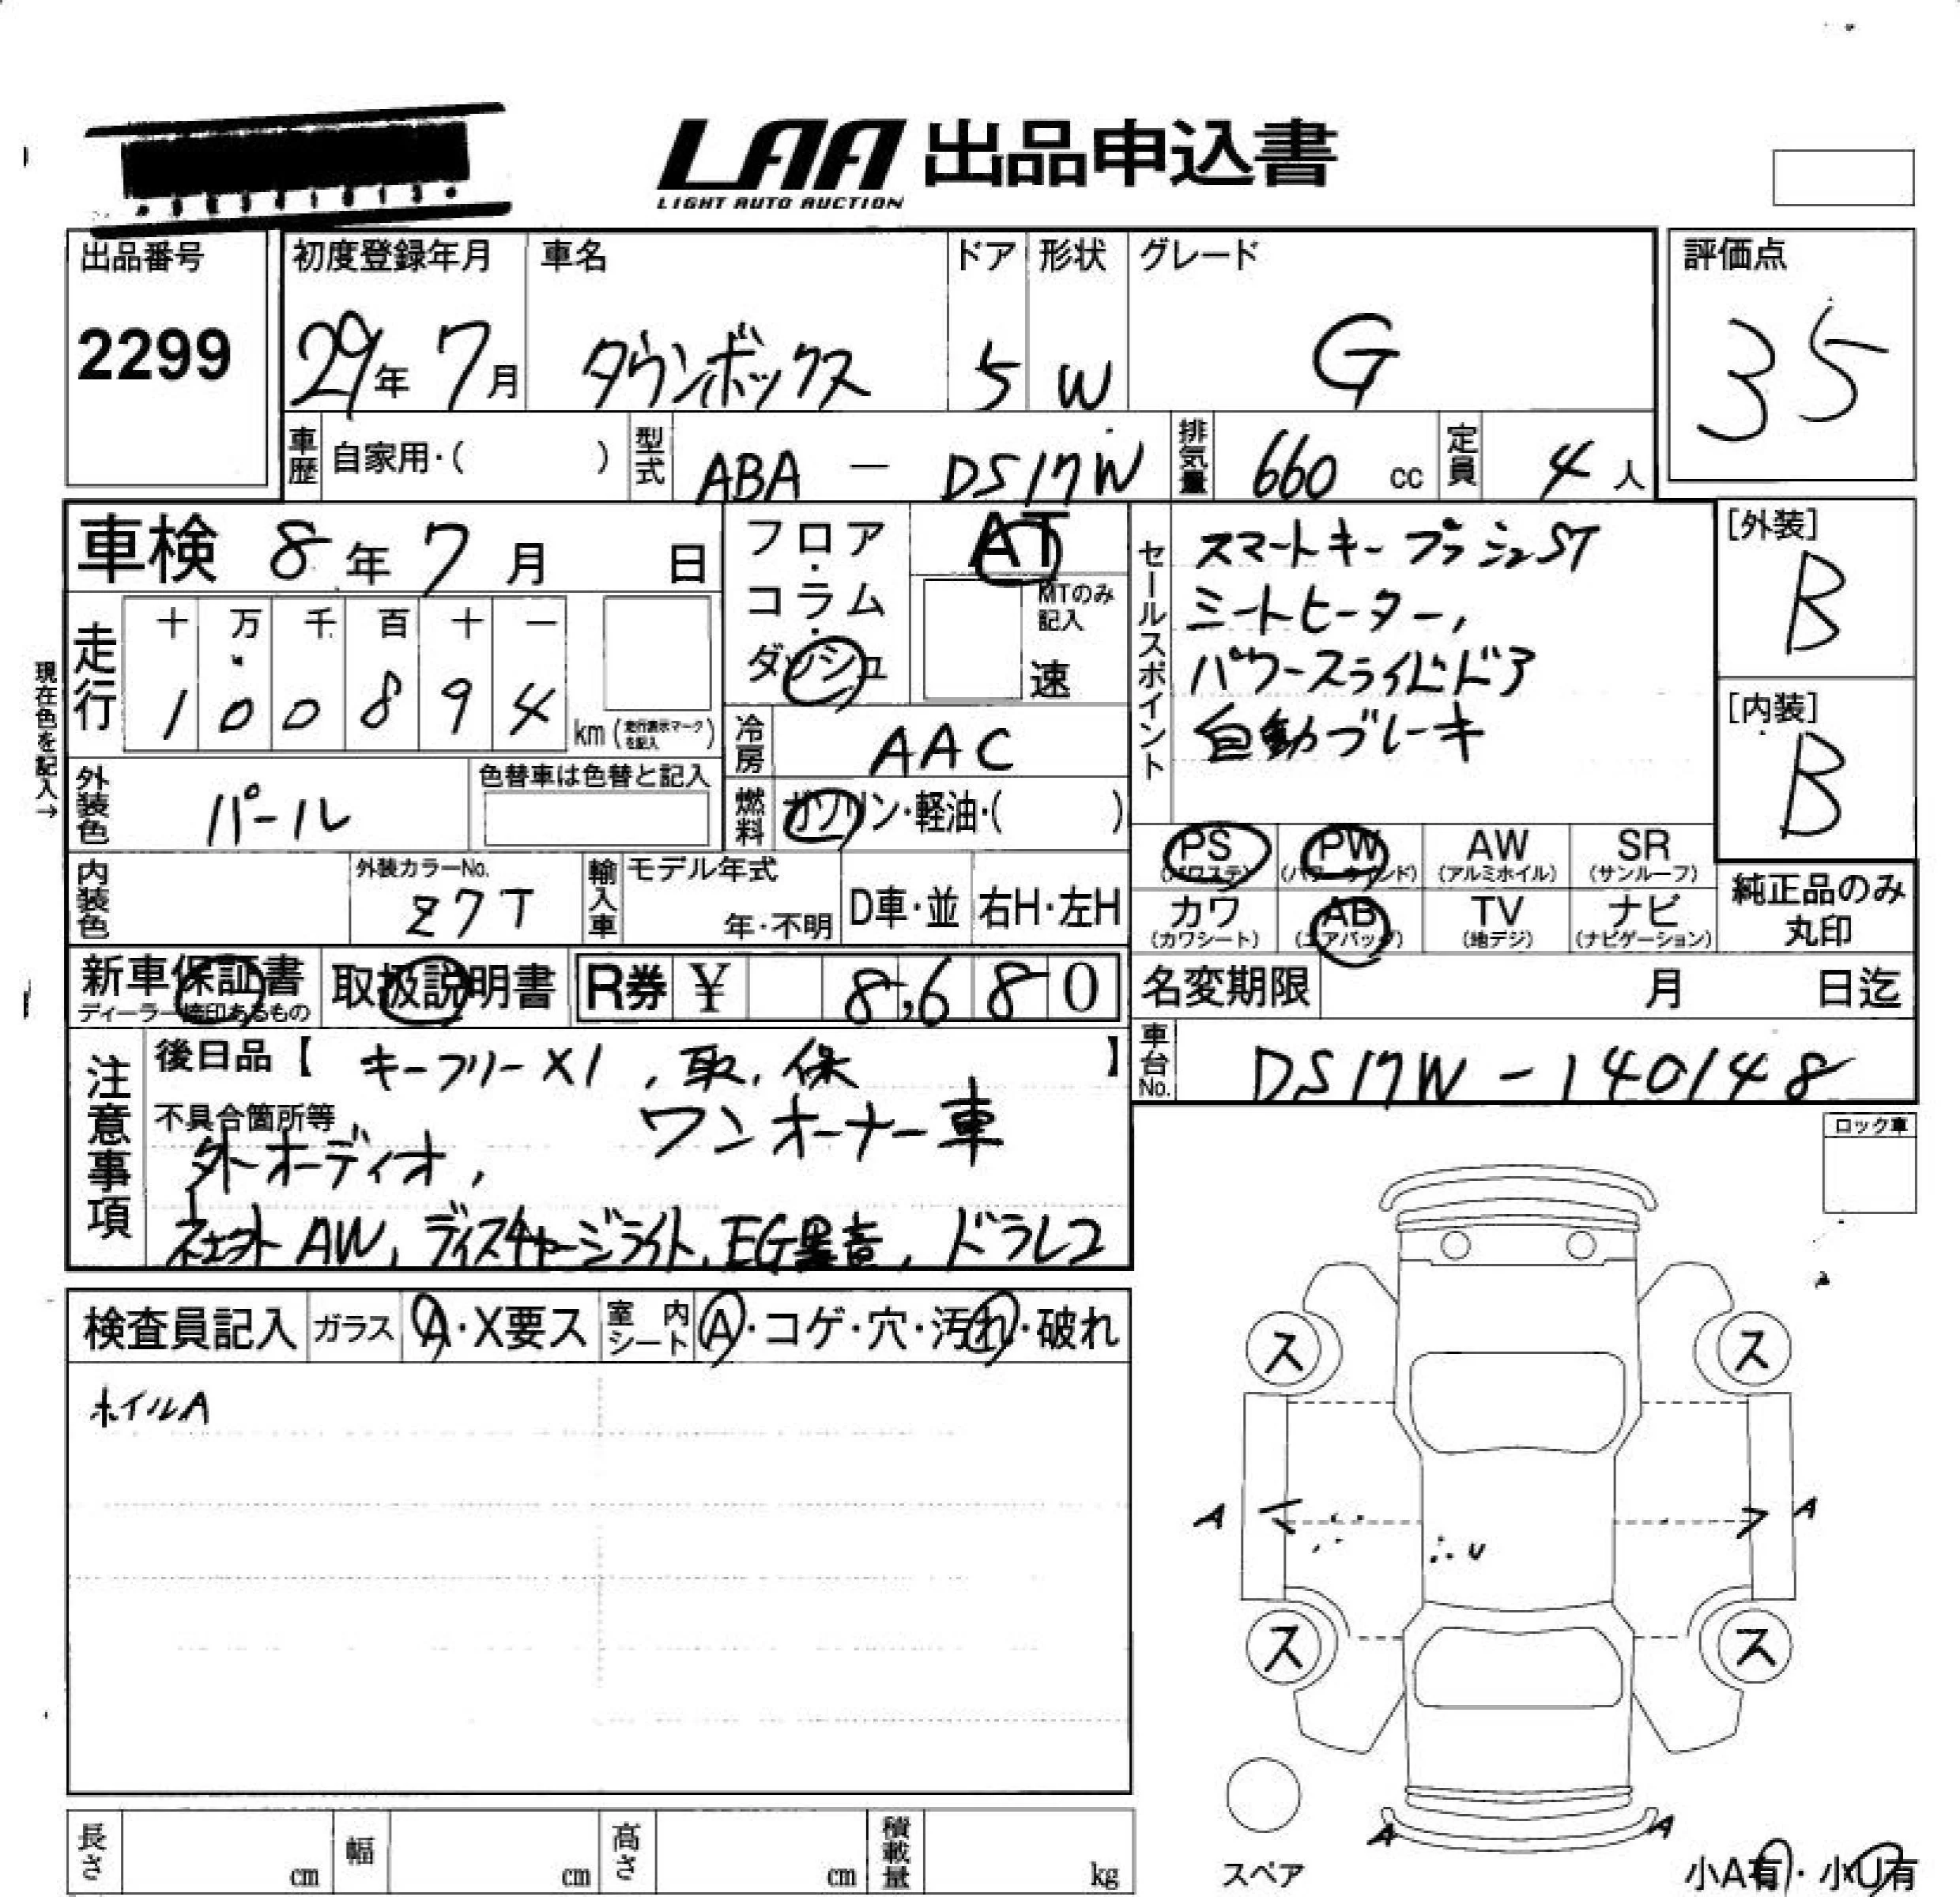 LAA 出品申込書
LIGHT AUTO AUCTION
出品番号
2299
初度登録年月
29年 7月
車名
タウンボックス
ドア
5
形状
W
グレード
G
評価点
35
車歴 自家用・( )
型式 ABA - DS17W
排気量 660 cc
定員 4 人
車検 8年 7月 日
フロア・コラム・ダッシュ
AT
MTのみ記入
速
セールスポイント
スマートキー プッシュST
シートヒーター,
パワースライドドア
自動ブレーキ
[外装]
B
[内装]
B
現在色を記入→
走行
十 万 千 百 十 一
1 0 0 8 9 4 km (走行表示マークを記入)
冷房 AAC
外装色 パール
色替車は色替と記入
燃料 ガソリン・軽油・( )
PS (パワステ)
PW (パワーウインド)
AW (アルミホイル)
SR (サンルーフ)
カワ (カワシート)
AB (エアバッグ)
TV (地デジ)
ナビ (ナビゲーション)
純正品のみ丸印
内装色
外装カラーNo.
Z7T
輸入車
モデル年式
年・不明
D車・並
右H・左H
新車保証書
ディーラー捺印あるもの
取扱説明書
R券 ¥ 8,680
名変期限 月 日迄
車台No. DS17W-140148
注意事項
後日品【 キーフリー×1 , 取, 保 】
不具合箇所等
ワンオーナー車
外オーディオ,
AW, ディスチャージライト, EG異音, ドラレコ
ロック車
検査員記入
ガラス A・X要ス
室内シート A・コゲ・穴・汚れ・破れ
ホイルA
ス ス
A A
U
ス ス
A A
スペア
小A有・小U有
長さ cm
幅 cm
高さ cm
積載量 kg